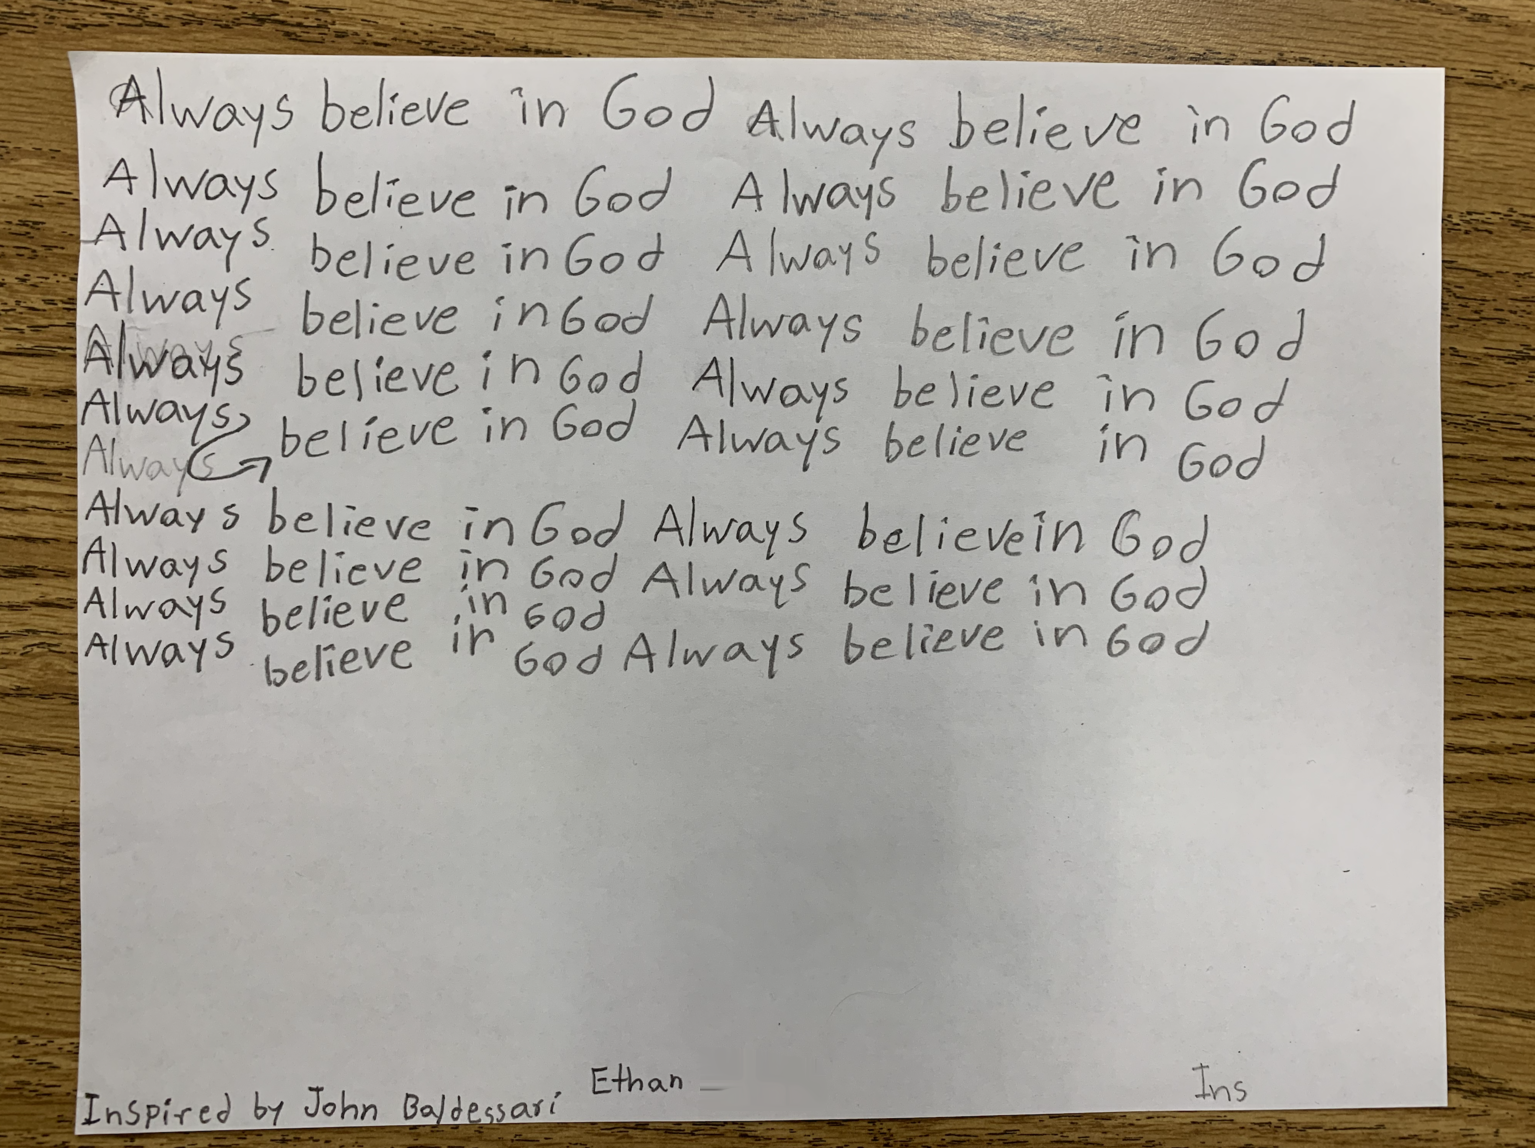 Always believe in God Always believe in God
Always believe in God Always believe in God
Always believe in God Always believe in God
Always believe in God Always believe in God
Always believe in God Always believe in God
Always believe in God Always believe in God
Always
Always believe in God Always believein God
Always believe in God Always believe in God
Always believe in God
Always believe in God Always believe in God
Ethan
Ins
Inspired by John Baldessari